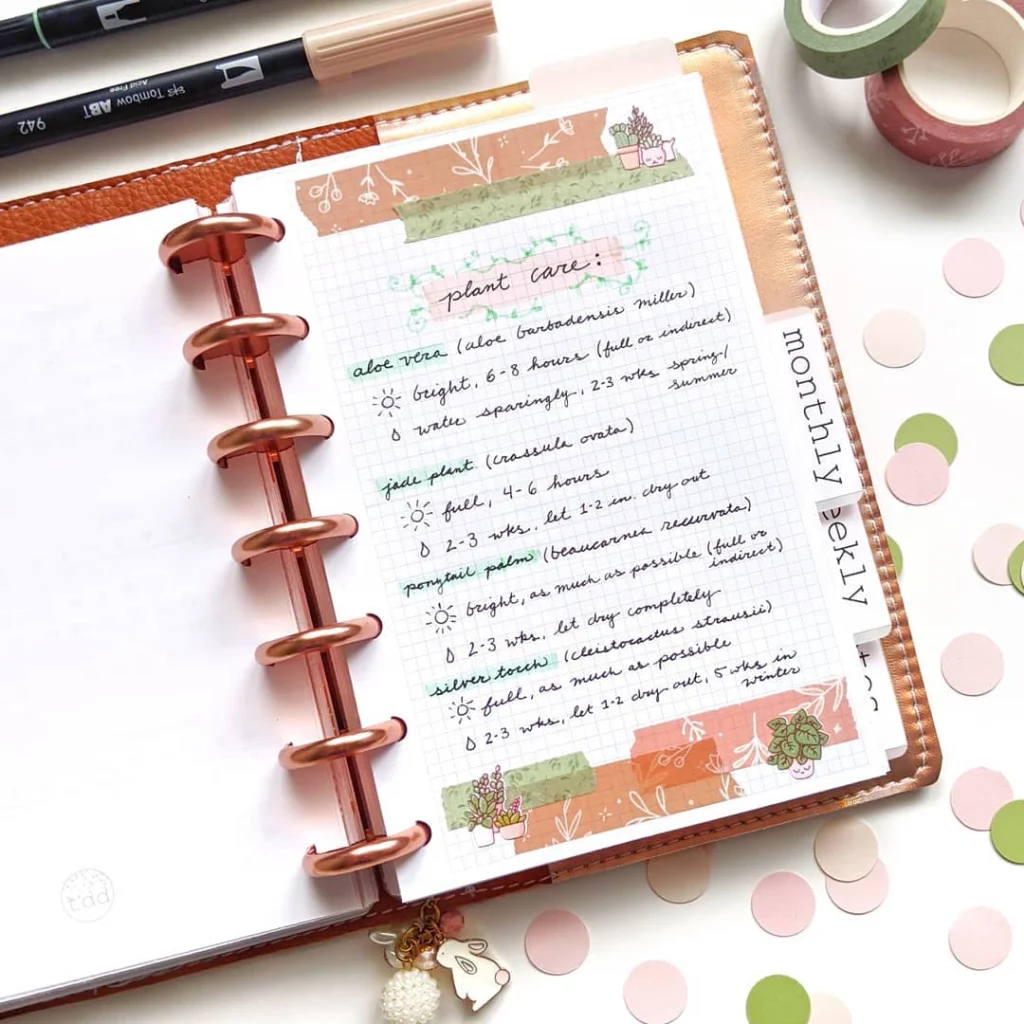 942 ABT Tombow
Acid Free
plant care:
aloe vera (aloe barbadensis miller)
bright, 6-8 hours (full or indirect)
water sparingly, 2-3 wks spring/
summer
jade plant (crassula ovata)
full, 4-6 hours
2-3 wks, let 1-2 in. dry out
ponytail palm (beaucarnea recurvata)
bright, as much as possible (full or
indirect)
2-3 wks, let dry completely
silver torch (cleistocactus strausii)
full, as much as possible
2-3 wks, let 1-2 dry out, 5 wks in
winter
monthly
eekly
tdd